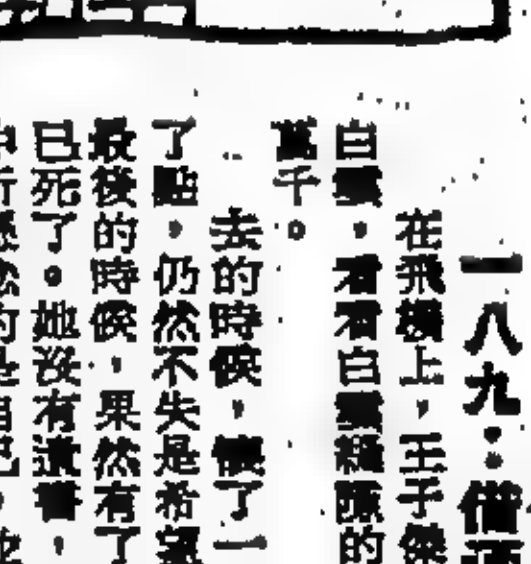 一八九:借酒
在飛機上,王子傑
白雲,看看白雲飄飄的
萬千。
去的時候,懷了一
了點,仍然不失是希望
最後的時候,果然有了
已死了。她沒有遺書,